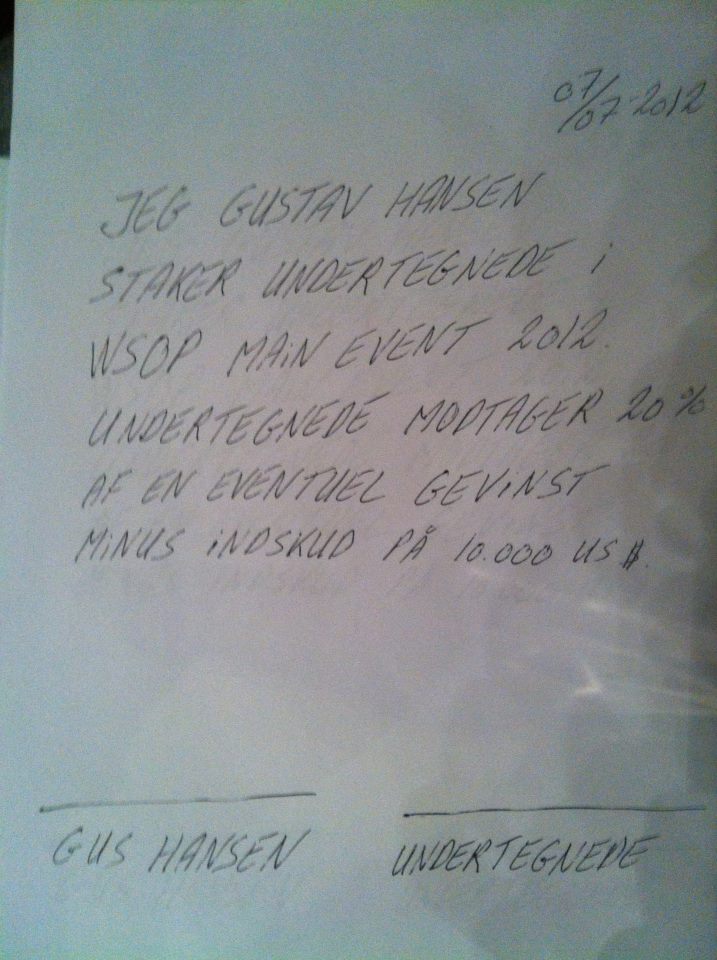 07/07-2012
JEG GUSTAV HANSEN
STAKER UNDERTEGNEDE i
WSOP MAiN EVENT 2012.
UNDERTEGNEDE MODTAGER 20%
AF EN EVENTUEL GEVINST
MiNUS iNDSKUD PÅ 10.000 US $.
GUS HANSEN
UNDERTEGNEDE